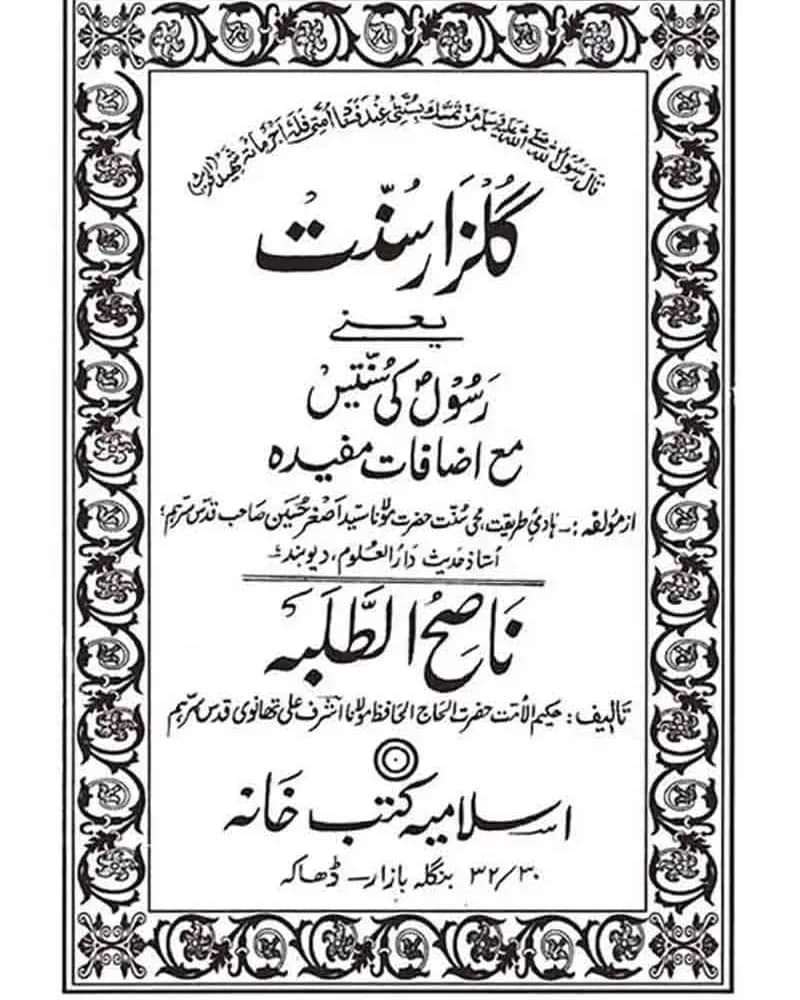 قال رسول الله صلى الله عليه وسلم من تمسك بسنتي عند فساد امتي فله اجر مائة شهيد (الحديث)
گلزار سنّت
یعنے
رسولؐ کی سنّتیں
مع اضافات مفیدہ
از مؤلفہ :۔ ہادیٔ طریقت، محی سُنّت حضرت مولانا سید اصغر حُسین صاحب قدس سرہم
اُستاذ حدیث دارُ العلوم، دیوبند
نَاصِحُ الطَّلَبَہ
تالیف : حکیم الاُمت حضرت الحاج الحافظ مولانا اشرف علی تھانوی قدس سرہم
اسلامیہ کتب خانہ
۳۲/۳۰ بنگلہ بازار۔ ڈھاکہ